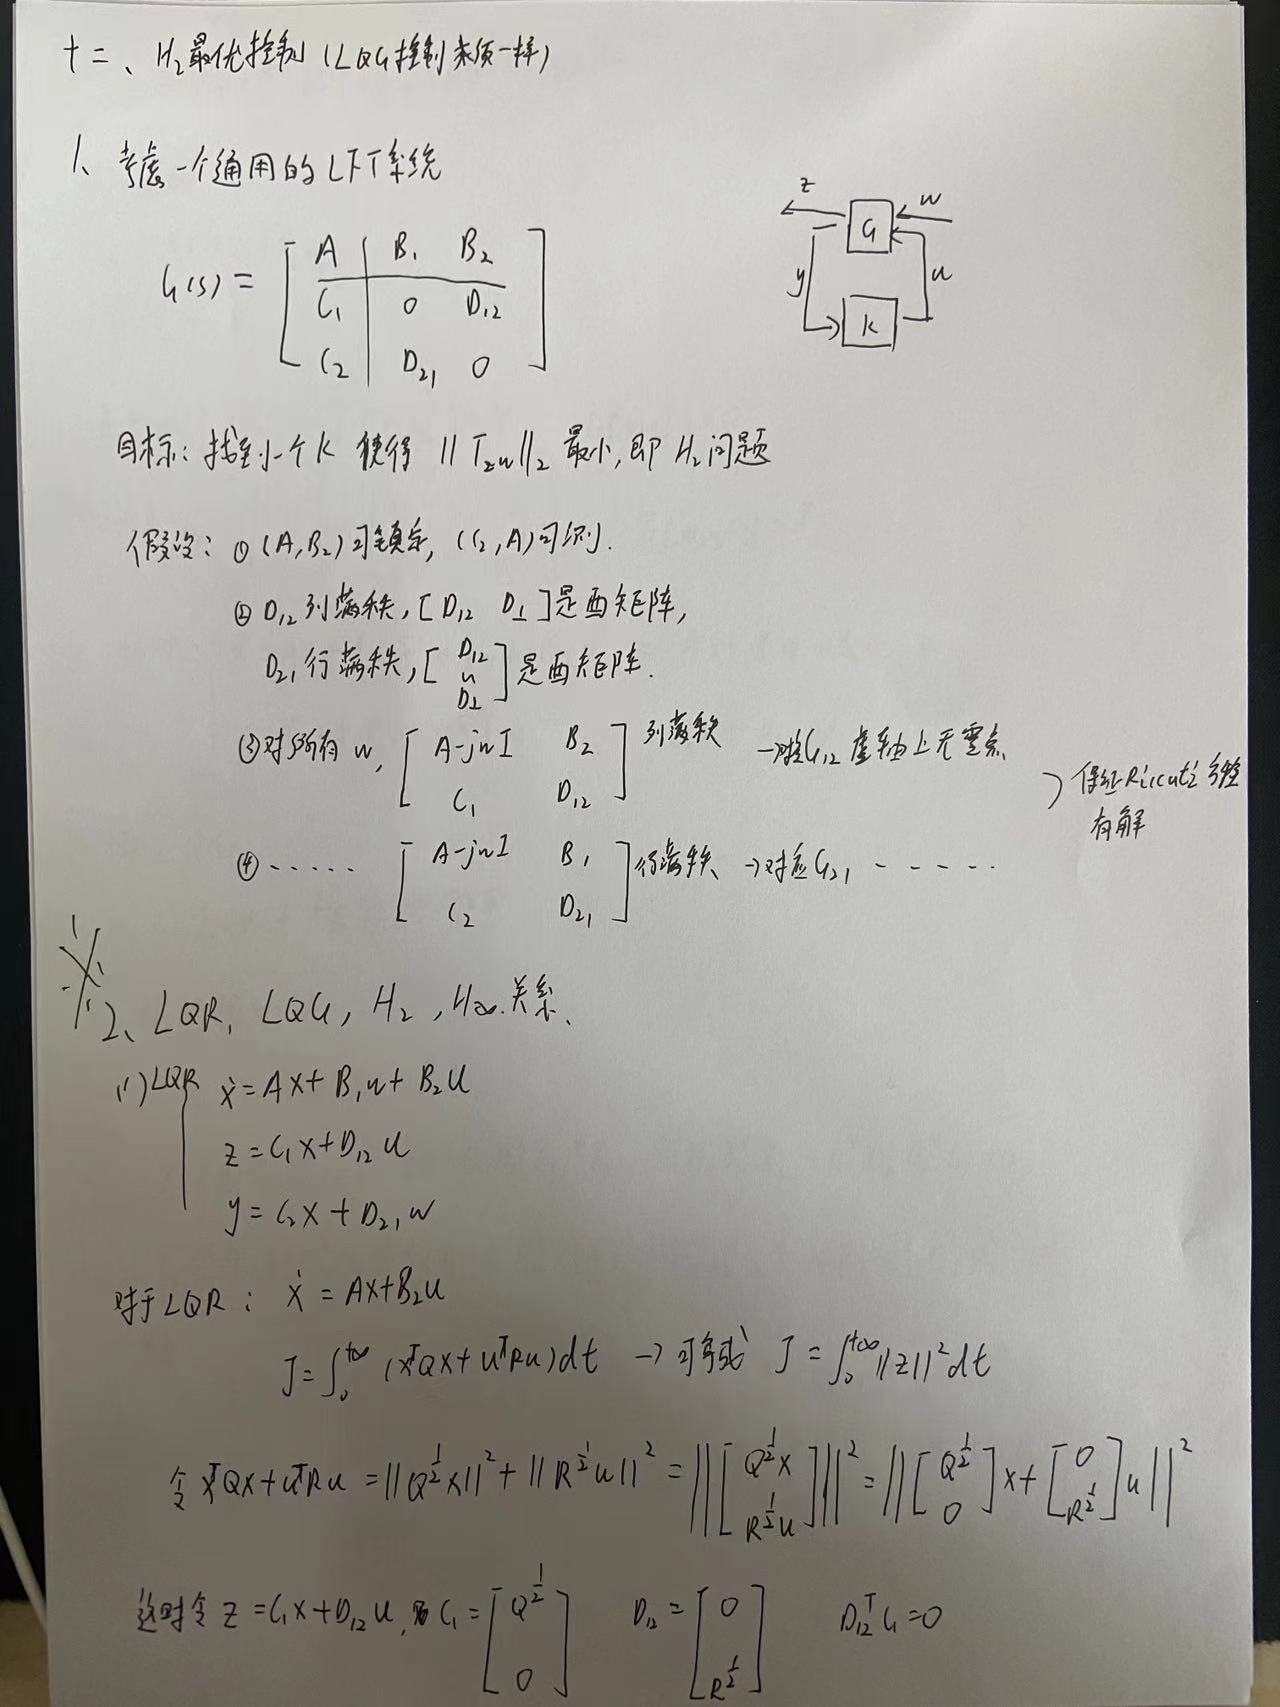 十二、H₂最优控制(LQG控制类须一样)
1、考虑一个通用的LFT系统
G(s) = [ A | B₁ B₂
C₁ | 0 D₁₂
C₂ | D₂₁ 0 ]
z G w
y u
K
目标: 找到一个K 使得 ||Tzw||₂ 最小, 即 H₂问题
假设: ① (A,B₂)可镇定, (C₂,A)可测.
② D₁₂列满秩, [D₁₂ D⊥]是酉矩阵,
D₂₁行满秩, [D₁₂ D⊥]是酉矩阵.
③对所有 w, [A-jwI B₂ C₁ D₁₂] 列满秩 →对应G₁₂虚轴上无零点
保证Riccati方程
有解
④ ······ [A-jwI B₁ C₂ D₂₁] 行满秩 →对应G₂₁ - - - - -
2、LQR, LQG, H₂, H∞关系、
(1)LQR ẋ=Ax+B₁w+B₂u
z=C₁x+D₁₂u
y=C₂x+D₂₁w
对于LQR: ẋ=Ax+B₂u
J=∫₀^{+∞}(xᵀQx+uᵀRu)dt → 可写成 J=∫₀^{+∞}||z||²dt
令 xᵀQx+uᵀRu=||Q^{1/2}x||²+||R^{1/2}u||²=||[Q^{1/2}x R^{1/2}u]||²=||[Q^{1/2} 0]x+[0 R^{1/2}]u||²
这时令 z=C₁x+D₁₂u, C₁=[Q^{1/2} 0] D₁₂=[0 R^{1/2}] D₁₂ᵀC₁=0